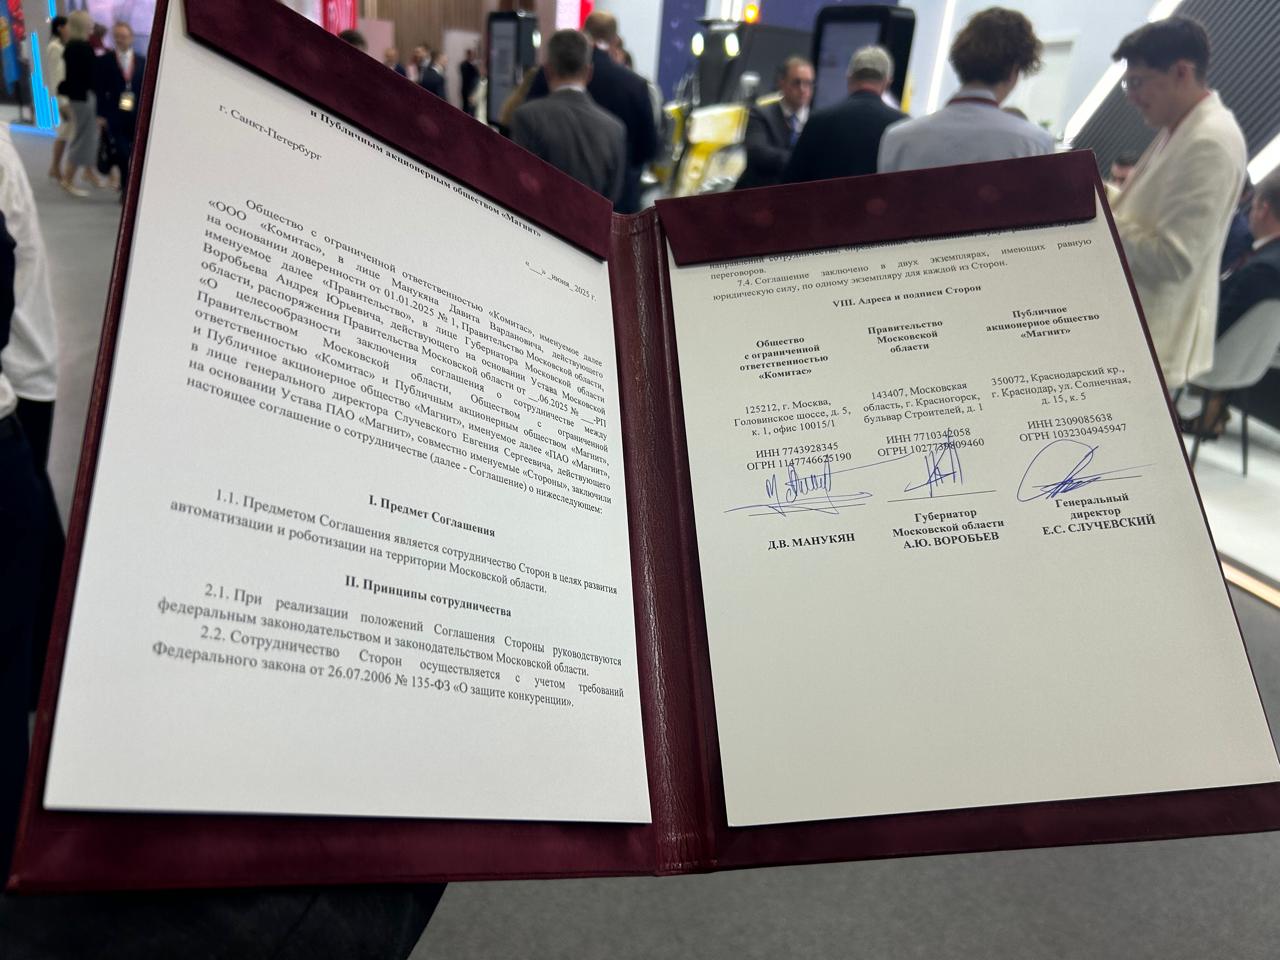 и Публичным акционерным обществом «Магнит»
г. Санкт-Петербург
«___» _июня_ 2025 г.
Общество с ограниченной ответственностью «Комитас», именуемое далее
«ООО «Комитас», в лице Манукяна Давита Вардановича, действующего
на основании доверенности от 01.01.2025 № 1, Правительство Московской области,
именуемое далее «Правительство», в лице Губернатора Московской области
Воробьева Андрея Юрьевича, действующего на основании Устава Московской
области, распоряжения Правительства Московской области от __.06.2025 № ___-РП
«О целесообразности заключения соглашения о сотрудничестве между
Правительством Московской области, Обществом с ограниченной
ответственностью «Комитас» и Публичным акционерным обществом «Магнит»,
и Публичное акционерное общество «Магнит», именуемое далее «ПАО «Магнит»,
в лице генерального директора Случевского Евгения Сергеевича, действующего
на основании Устава ПАО «Магнит», совместно именуемые «Стороны», заключили
настоящее соглашение о сотрудничестве (далее - Соглашение) о нижеследующем:
I. Предмет Соглашения
1.1. Предметом Соглашения является сотрудничество Сторон в целях развития
автоматизации и роботизации на территории Московской области.
II. Принципы сотрудничества
2.1. При реализации положений Соглашения Стороны руководствуются
федеральным законодательством и законодательством Московской области.
2.2. Сотрудничество Сторон осуществляется с учетом требований
Федерального закона от 26.07.2006 № 135-ФЗ «О защите конкуренции».
переговоров.
7.4. Соглашение заключено в двух экземплярах, имеющих равную
юридическую силу, по одному экземпляру для каждой из Сторон.
VIII. Адреса и подписи Сторон
Общество
с ограниченной
ответственностью
«Комитас»
125212, г. Москва,
Головинское шоссе, д. 5,
к. 1, офис 10015/1
ИНН 7743928345
ОГРН 1147746625190
Д.В. МАНУКЯН
Правительство
Московской
области
143407, Московская
область, г. Красногорск,
бульвар Строителей, д. 1
ИНН 7710342058
ОГРН 1027739809460
Губернатор
Московской области
А.Ю. ВОРОБЬЕВ
Публичное
акционерное общество
«Магнит»
350072, Краснодарский кр.,
г. Краснодар, ул. Солнечная,
д. 15, к. 5
ИНН 2309085638
ОГРН 1032304945947
Генеральный
директор
Е.С. СЛУЧЕВСКИЙ